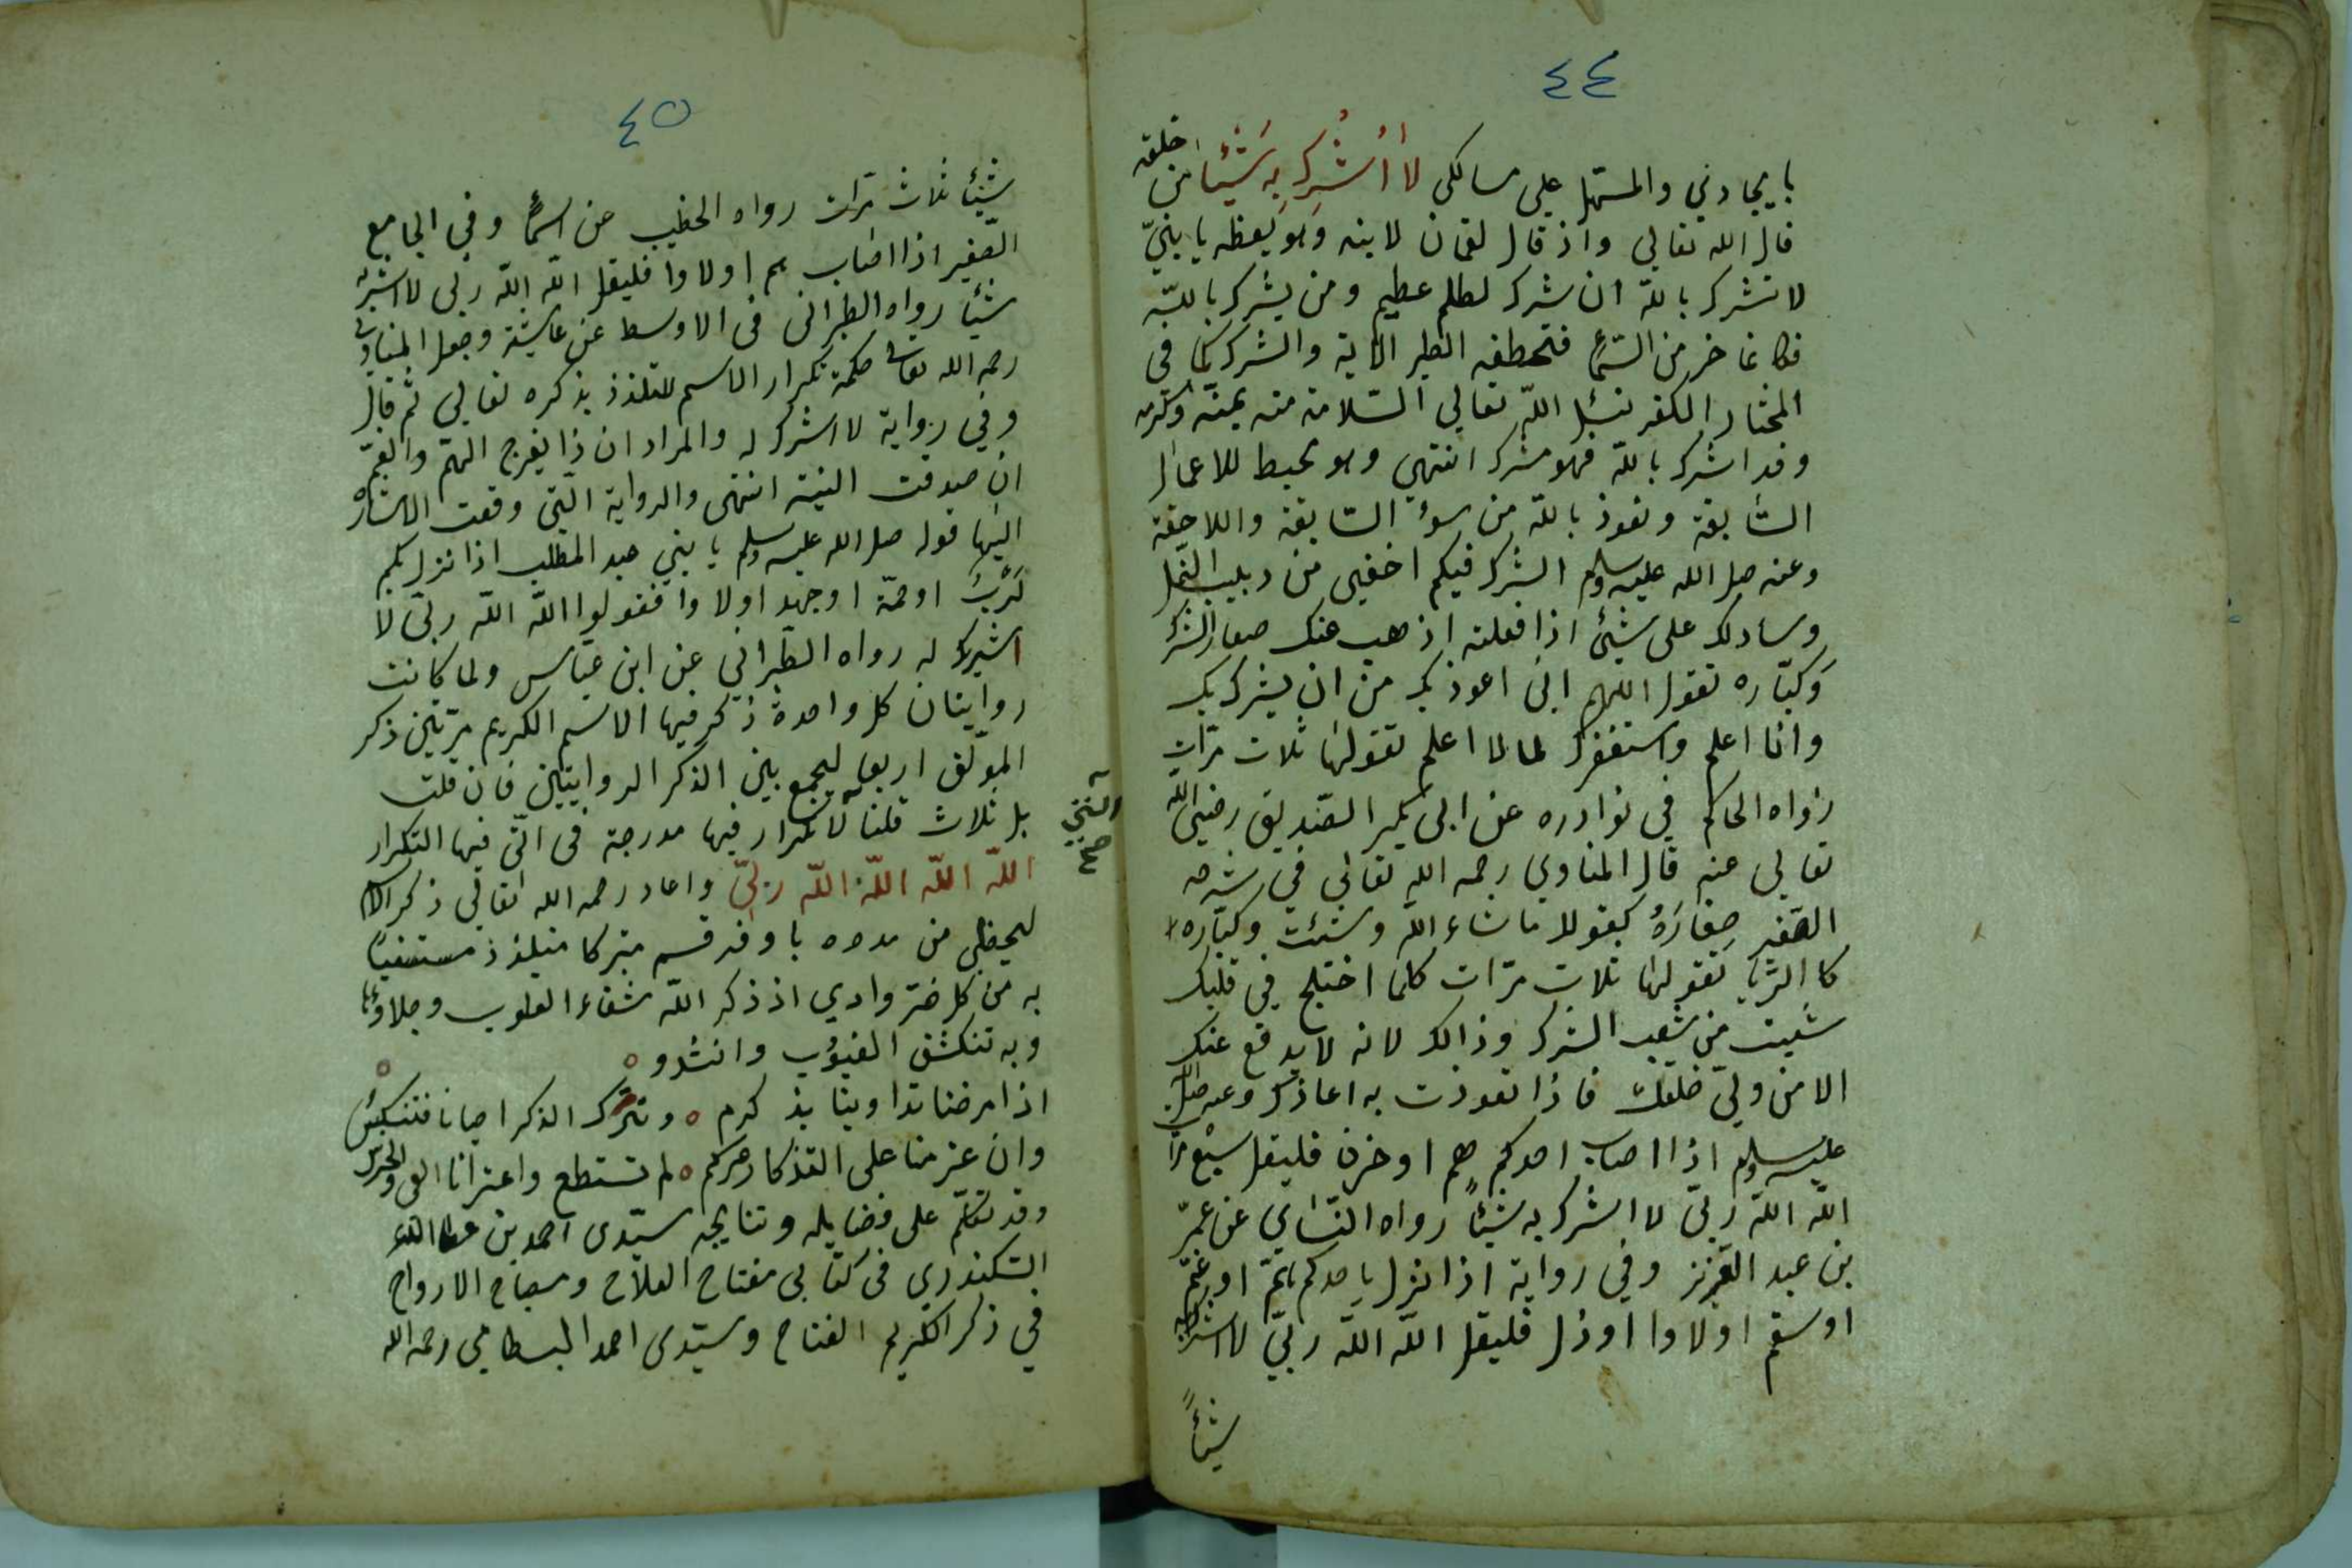 ٤٤
بايجادني والمسهل علي مسالكي لا أُشرِكُ به شَيْئًا من خلقه
قال الله تعالى واذ قال لقمان لابنه وهو يعظه يا بنيّ
لا تشرك بالله ان شرك لظلم عظيم ومن يشرك بالله
فكانما خر من السماء فتخطفه الطير الاية والشرك كما في
المختار الكفر نسئل الله تعالى السلامة منه بمنه وكرمه
وقد اشرك بالله فهو مشرك انتهي وهو محبط للاعمال
السابقة ونعوذ بالله من سوء السابقة واللاحقة
وعنه صلى الله عليه وسلم الشرك فيكم اخفي من دبيب النمل
وسادلك على شيئ اذا فعلته اذهب عنك صغار الشرك
وكبّاره تقول اللهم اني اعوذ بك من ان يشرك بك
وانا اعلم واستغفرك لما لا اعلم تقولها ثلاث مرّات
رواه الحاكم في نوادره عن ابي بكر الصّديق رضي الله
تعالى عنه قال المناوي رحمه الله تعالى في شرحه
الصغير صِغَارَهُ كقولك ما شاء الله وشئت وكبّاره
كالرّيا تقولها ثلاث مرّات كلما اختلج في قلبك
شيئ من شعب الشرك وذالك لانه لا يدفع عنك
الا من ولي خلقك فاذا تعوذت به اعاذك وعنه صلى الله
عليه وسلم اذا اصاب احدكم هم او حزن فليقل سبع مرات
الله الله ربّي لا اشرك به شيئًا رواه النّساي عن عمر
بن عبد العزيز وفي رواية اذا نزل باحدكم همّ او غمّ
او سقم او لاوا او ذل فليقل الله الله ربّي لا اشرك به
شيئًا
٤٥
شيئًا ثلاث مرّات رواه الخطيب عن اسما وفي الجامع
الصّغير اذا اصاب هم او لاوا فليقل الله الله ربي لا اشرك به
شيئا رواه الطبراني في الاوسط عن عايشة وجعل المناوي
رحمه الله تعالى حكمة تكرار الاسم للتلذذ بذكره تعالى ثم قال
وفي رواية لا اشرك له والمراد ان ذا يفرج الهمّ والغمّ
ان صدقت النية انتهى والرواية الّتي وقعت الاشارة
اليها قوله صلى الله عليه وسلم يا بني عبد المطلب اذا نزل بكم
كَرْبٌ او حمّة او جهد او لاوا فقولوا الله الله ربّي لا
اشرك له رواه الطّبراني عن ابن عبّاس ولما كانت
روايتان كل واحدة ذكر فيها الاسم الكريم مرّتين ذكر
المؤلّف اربعا ليجمع بين الذكر الروايتين فان قلت
بل ثلاث قلنا لا تكرار فيها مدرجة في الّتي فيها التكرار
التي
صح
الله الله الله الله ربّي واعاد رحمه الله تعالى ذكر الاسم
ليحظي من مدده باوفر قسم متبركا متلذذ مستشفيا
به من كل ضرّ وادي اذ ذكر الله شفاء القلوب وجلاؤها
وبه تنكشف الغيوب وانشدو
اذا مرضنا تداوينا بذكركم ونترك الذكر احيانا فننتكس
وان عزمنا على التذكار عركم لم نستطع واعترانا العي والخرس
وقد تكلّم على فضايله ونتايجه سيّدى احمد بن عطا الله
السّكندري في كتابي مفتاح الفلاح ومصباح الارواح
في ذكر الكريم الفتاح وسيّدى احمد البسطامي رحمه الله